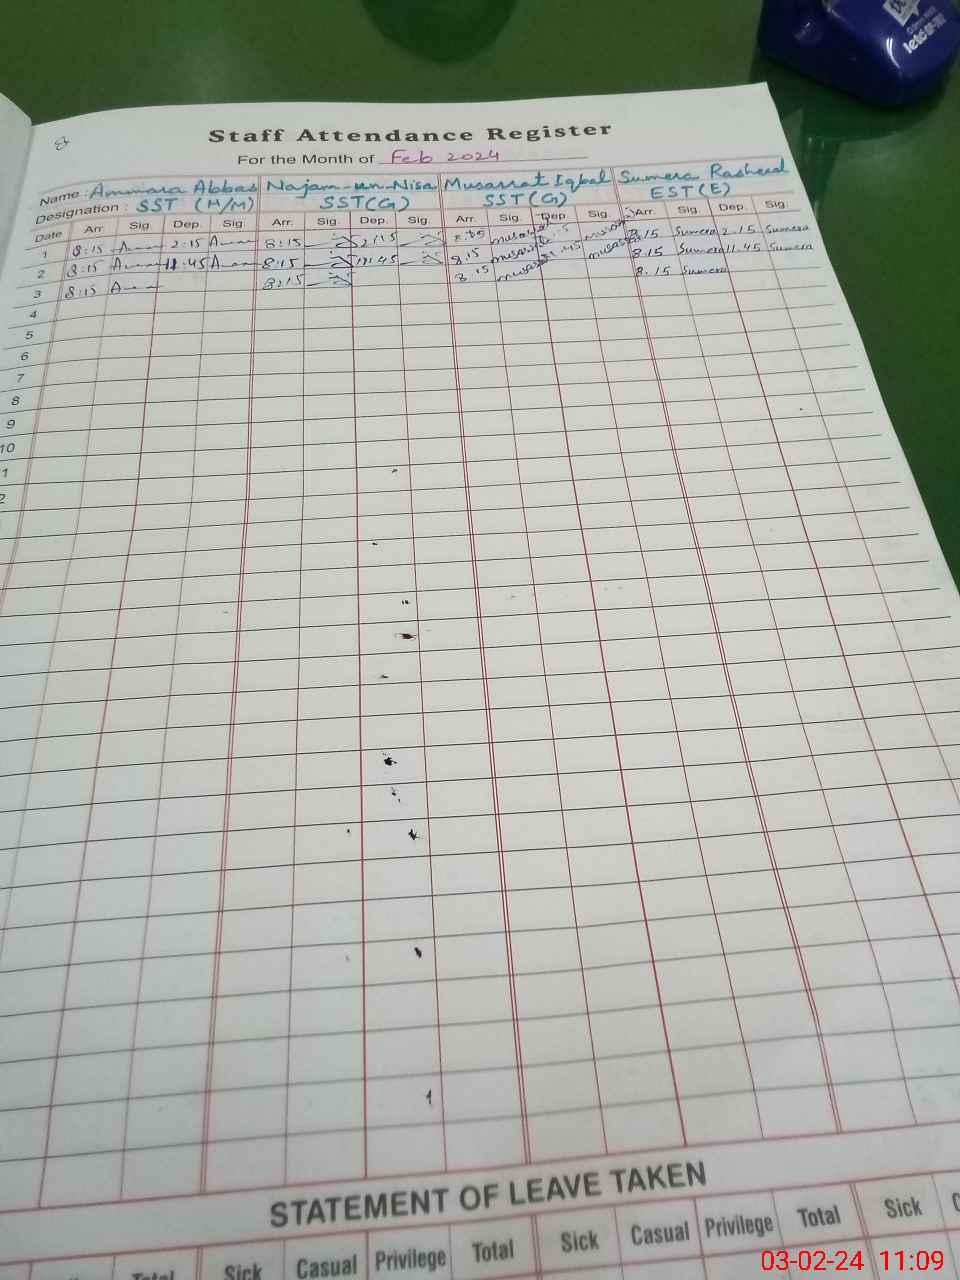 8
Staff Attendance Register
For the Month of Feb 2024
Name : Ammara Abbas Najam-un-Nisa Musarrat Iqbal Sumera Rasheed
Designation : SST (H/M) SST(G) SST(G) EST(E)
Date Arr Sig. Dep. Sig. Arr. Sig. Dep. Sig. Arr. Sig. Dep. Sig. Arr. Sig. Dep. Sig.
1 8:15 2:15 8:15 2:15 8:15 Sumera 2.15 Sumera
2 8:15 11:45 8:15 11:45 8.15 8.15 Sumera 11.45 Sumera
3 8:15 8:15 8.15 8.15 Sumera
4
5
6
7
8
9
10
1
2
STATEMENT OF LEAVE TAKEN
Total Sick Casual Privilege Total Sick Casual Privilege Total Sick
03-02-24 11:09